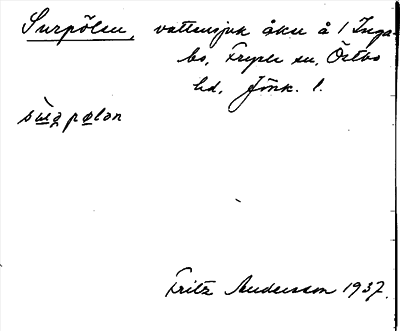 Surpölen, vattensjuk åker å 1 Inga-
bo, Fryele sn, Östbo
hd, Jönk. l.
Fritz Andersson 1937.